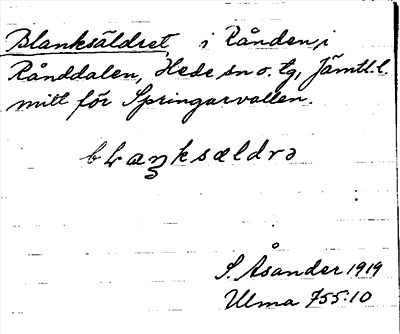 Blanksäldret i Rånden, i
Rånddalen, Hede sn o. tg, Jämtl. l.
mitt för Springarvallen.
blaŋksældrə
S. Åsander 1919
Ulma 755:10